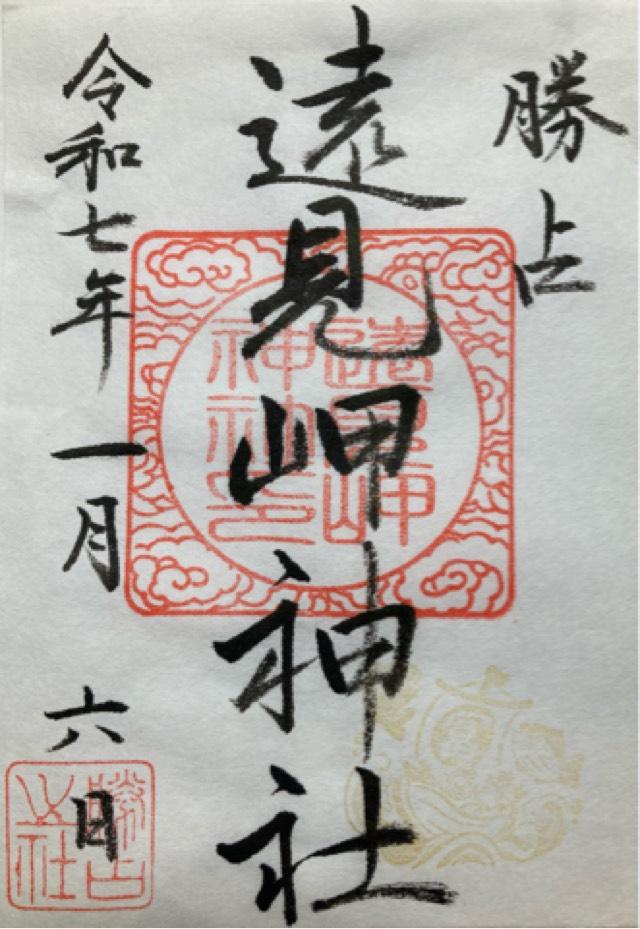 勝占
遠見岬神社
令和七年一月六日
遠見岬
神社印
勝占
之社